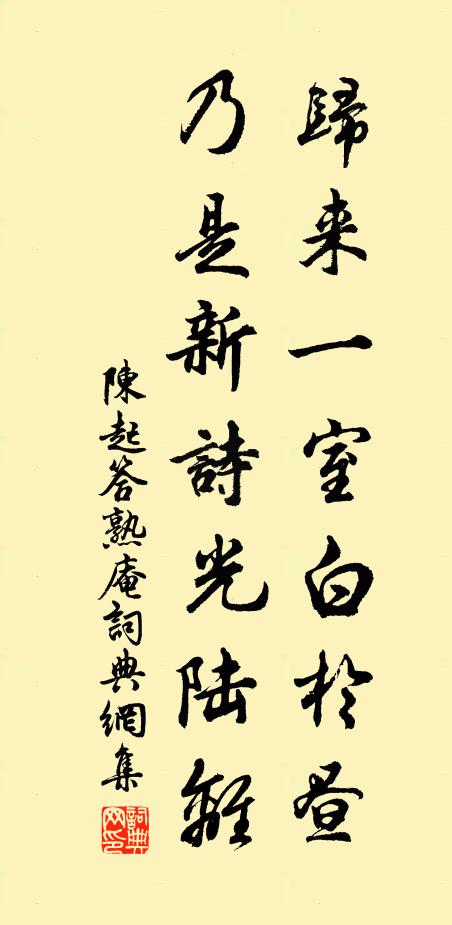 歸来一室白於昼
乃是新詩光陆離
陳起答熟庵詞典網集
詞典网印